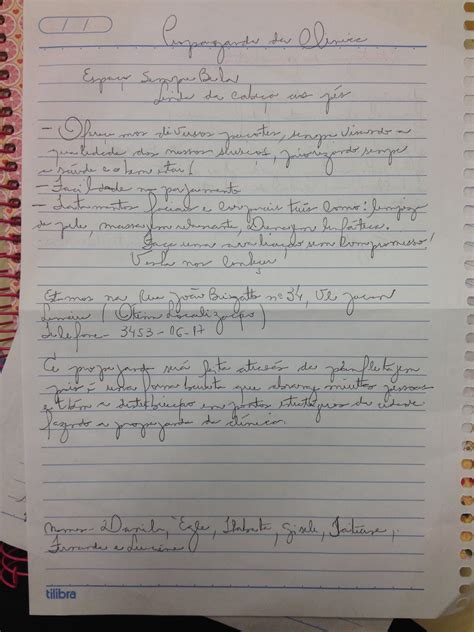 Propaganda da Clinica
Espaço Sempre Bela
Linda da cabeça aos pés
- Oferecemos diversos pacotes, sempre visando a
qualidade dos nossos serviços, priorizando sempre
a saúde e o bem estar!
- Facilidade no pagamento
- Tratamentos faciais e corporais tais como: limpeza
de pele, massagem relaxante, Drenagem linfática.
Faça uma avaliação sem compromisso!
Venha nos conhecer
Estamos na Rua João nº 34, Vl
(Ótima Localização)
Telefone - 3453-06-17
A propaganda será feita através de panfletagem
pois, é uma forma que abrange muitas pessoas
e também a distribuição em pontos da cidade
fazendo a propaganda da clínica.
Nomes Danila, Egle, Gisele, Tatiane,
Fernanda e
tilibra